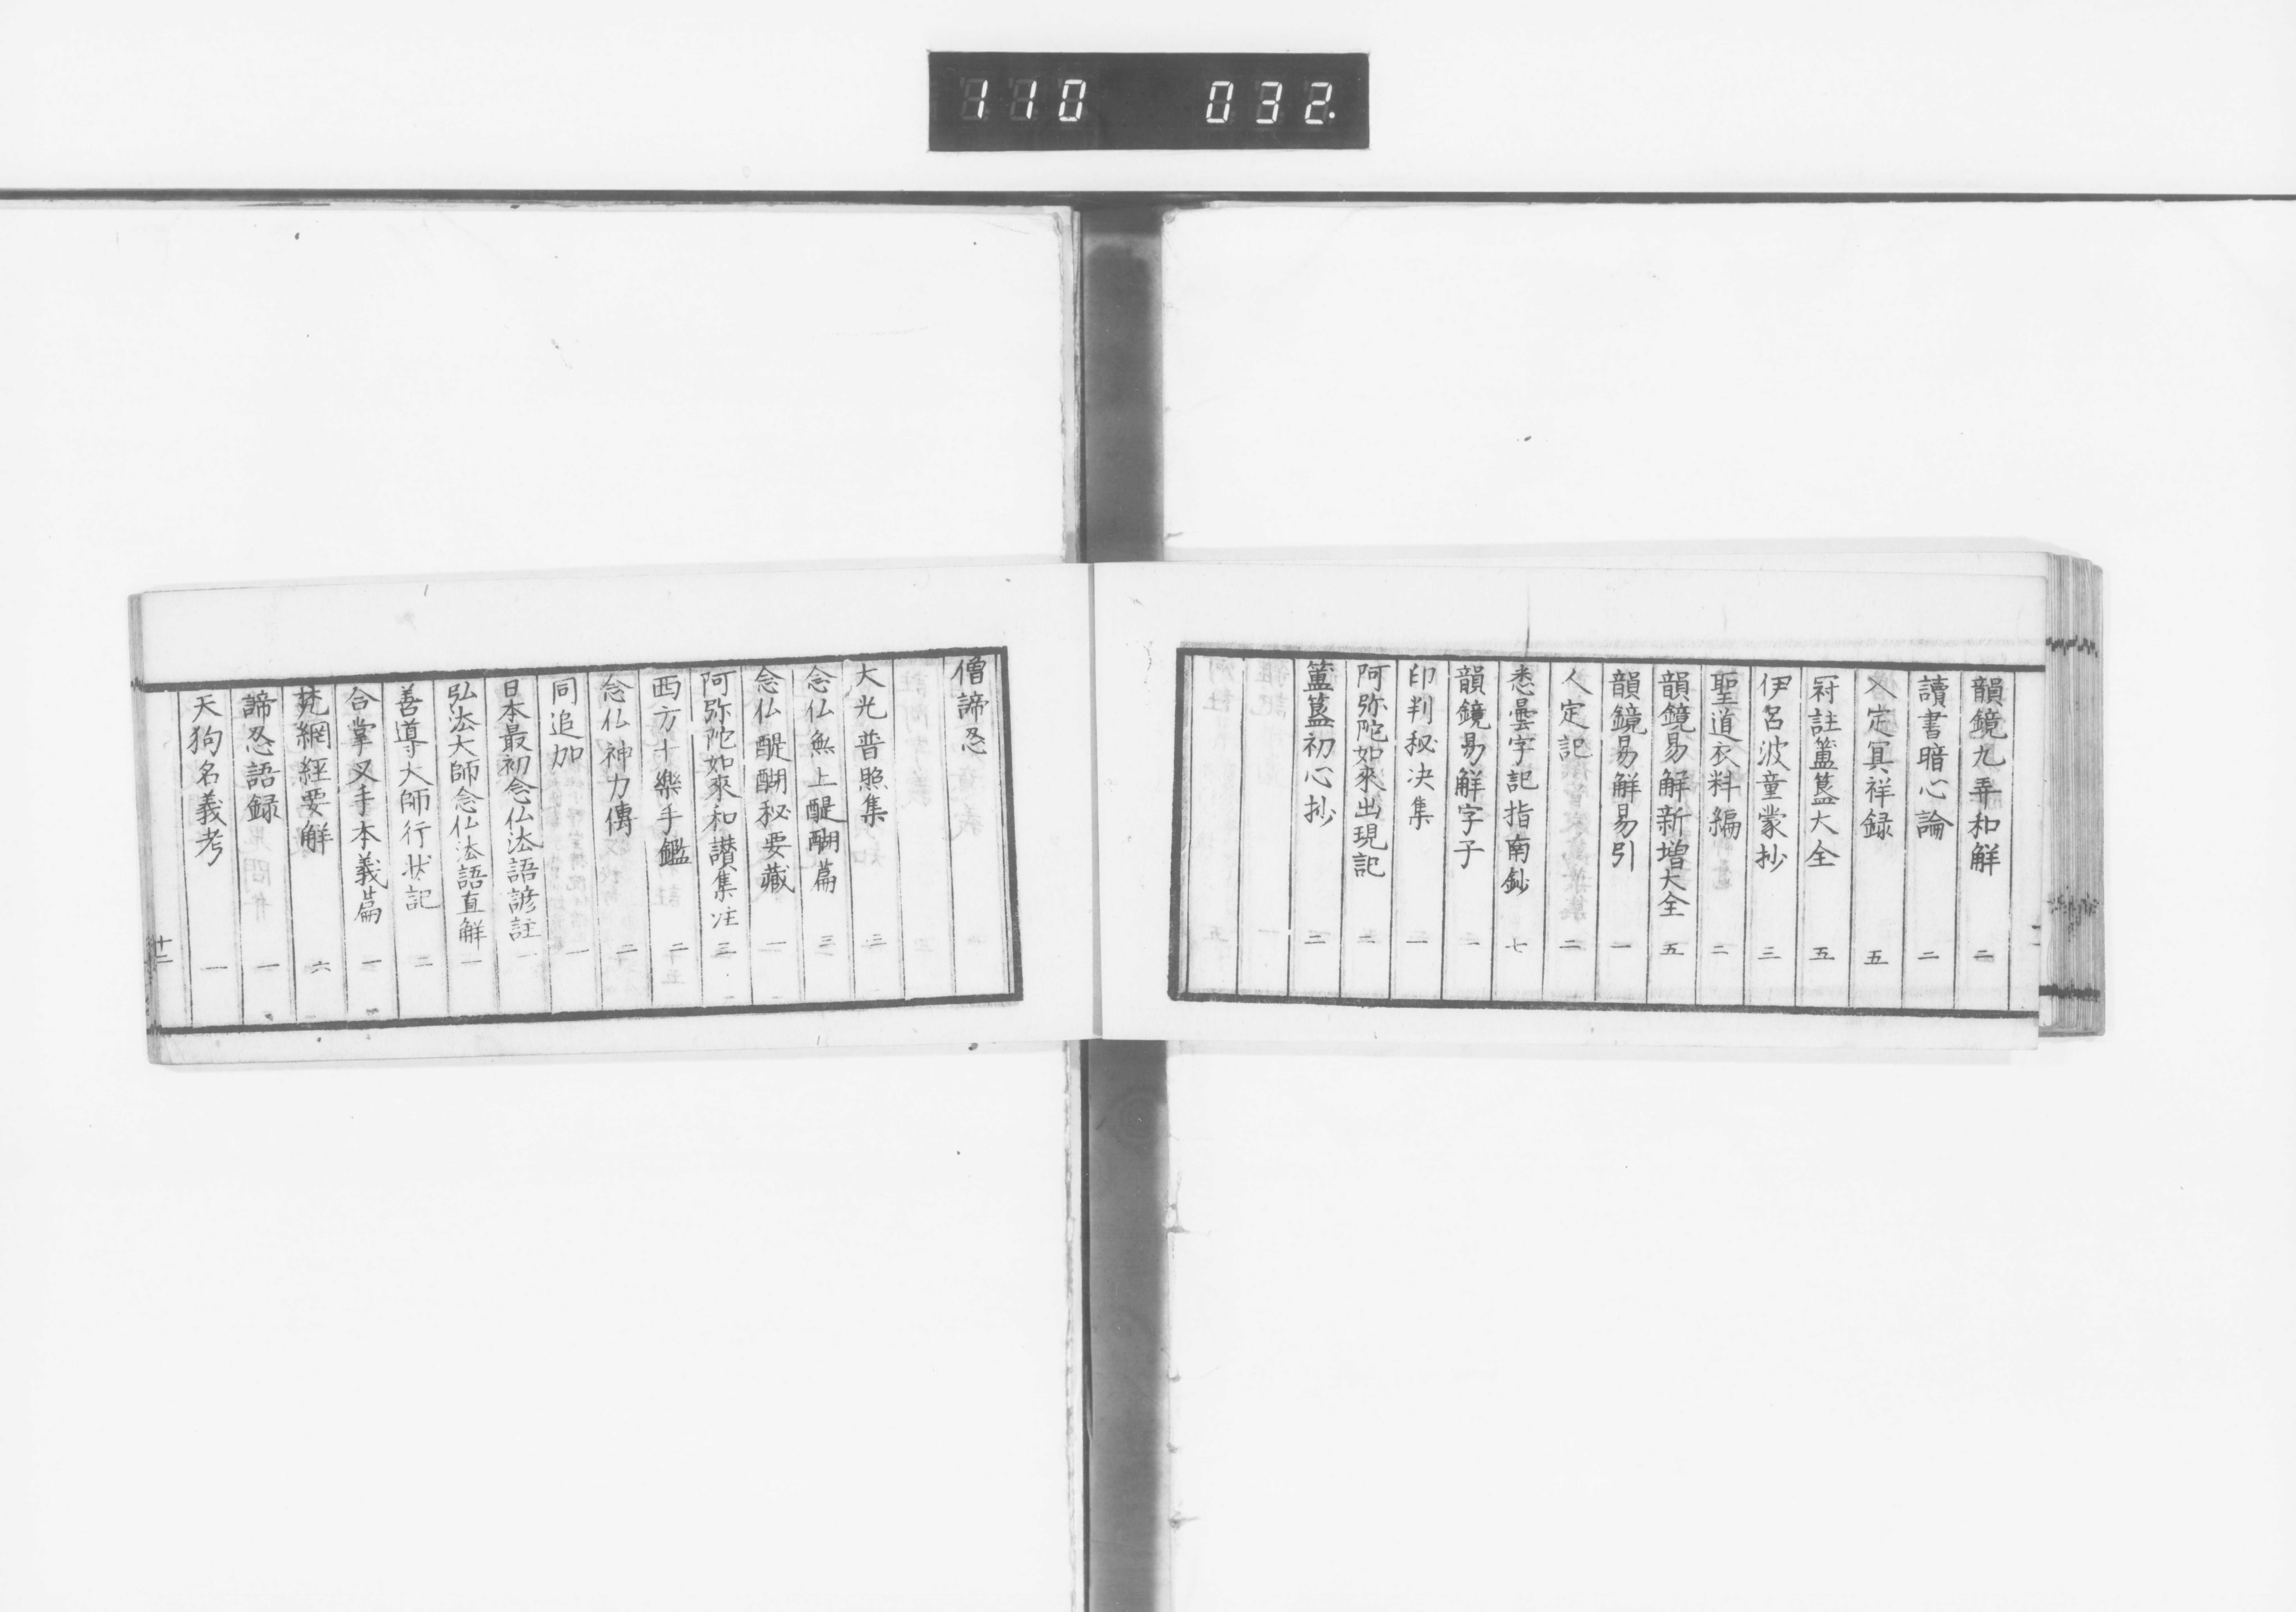 110 032.
韻鏡九弄和解 二
讀書暗心論 二
入定冥祥録 五
冠註簠簋大全 五
伊呂波童蒙抄 三
聖道衣料編 二
韻鏡易解新増大全 五
韻鏡易解易引 一
人定記 二
悉曇字記指南鈔 七
韻鏡易解字子 一
印判秘决集 二
阿弥陀如來出現記 二
簠簋初心抄 二
僧諦忍
大光普照集 三
念仏無上醍醐篇 三
念仏醍醐秘要藏 一
阿弥陀如來和讃集注 三
西方十樂手鑑 二
念仏神力傳 二
同追加 一
日本最初念仏法語諺註 一
弘法大師念仏法語直解 一
善導大師行状記 二
合掌叉手本義篇 一
梵網經要解 六
諦忍語録 一
天狗名義考 一
十二